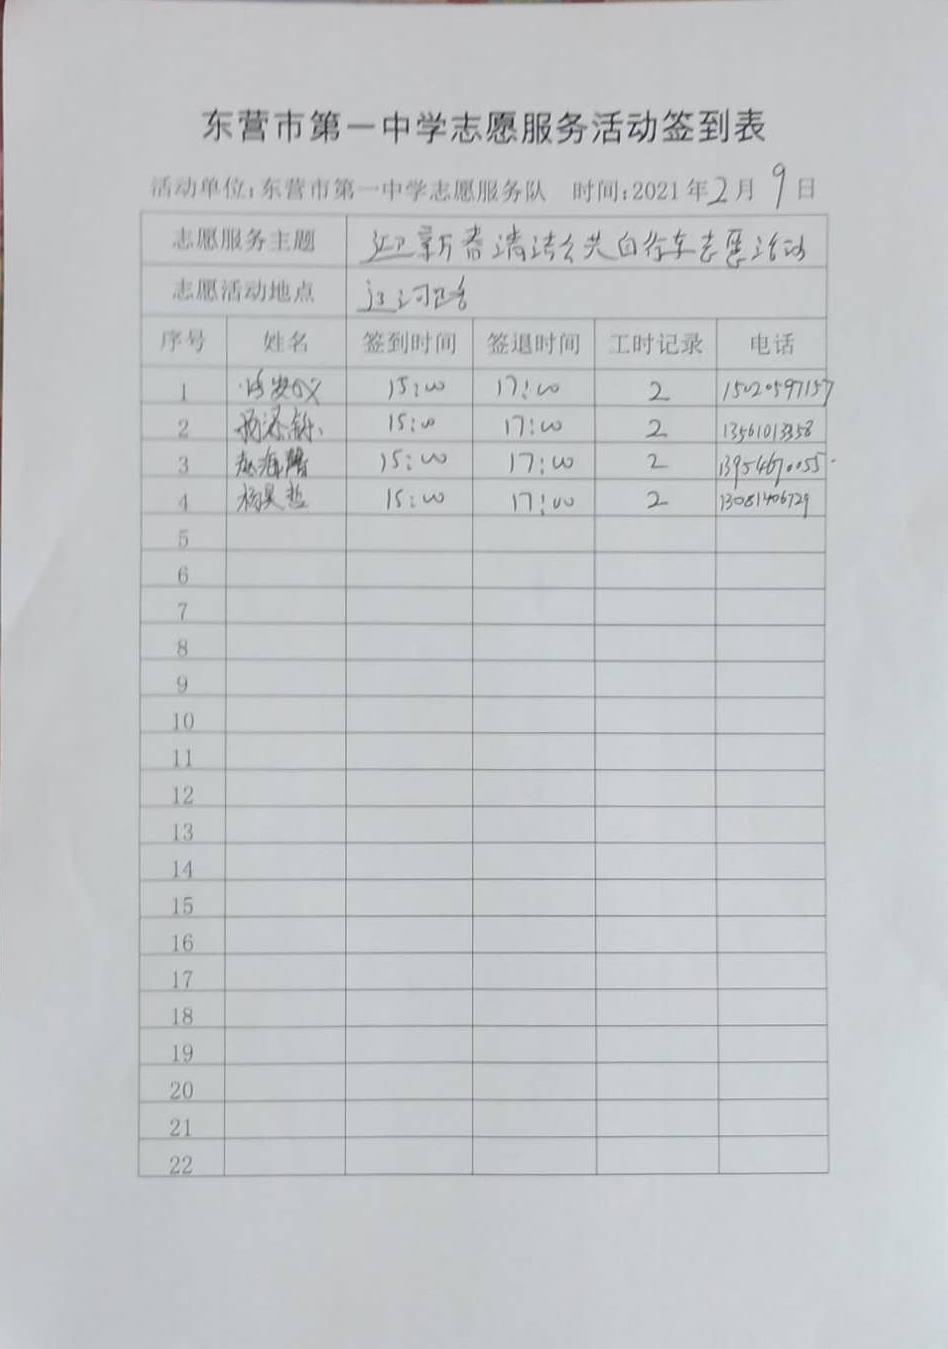 东营市第一中学志愿服务活动签到表
活动单位:东营市第一中学志愿服务队 时间:2021年2月9日
志愿服务主题 迎新春清洁公共自行车志愿活动
志愿活动地点
序号 姓名 签到时间 签退时间 工时记录 电话
1 15:00 17:00 2 15020597157
2 15:00 17:00 2 13561013358
3 15:00 17:00 2 13954670055
4 杨昊哲 15:00 17:00 2 13081406729
5
6
7
8
9
10
11
12
13
14
15
16
17
18
19
20
21
22